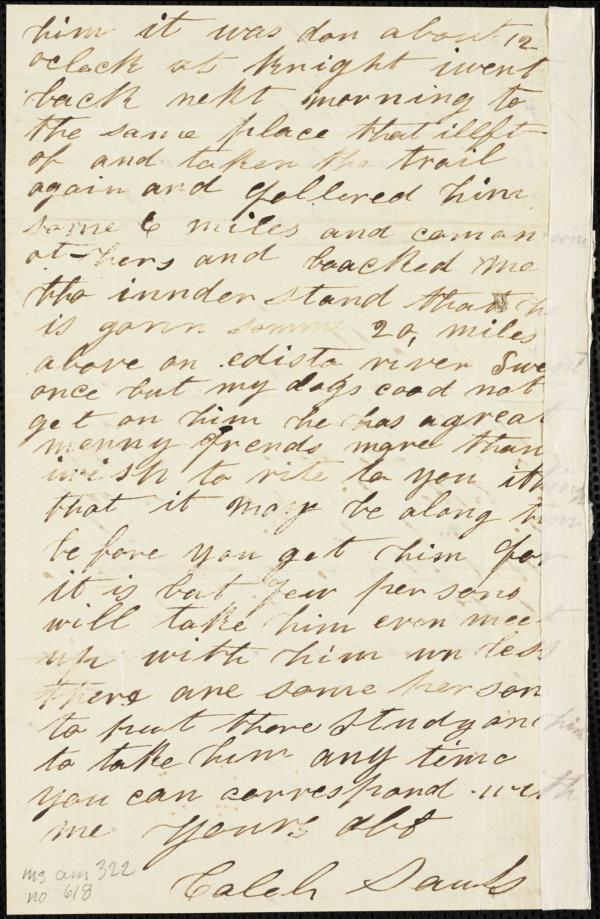 him it was don about 12
oclock at Knight iwent
back nekt morning to
the same place that ilft
of and taken the trail
again and follered him
some 6 miles and
others and backed me
tho innder stand that
is gonn somme 20, miles
above on edisto river
once but my dogs cood not
get on him he has agreat
menny frends more than
iwish to rite to you
that it may be along
before you get him for
it is but few persons
will take him even
up with him un less
there are some person
to put there study on
to take him any time
you can correspond with
me yours
Caleb Sauls
ms am 322
no 618